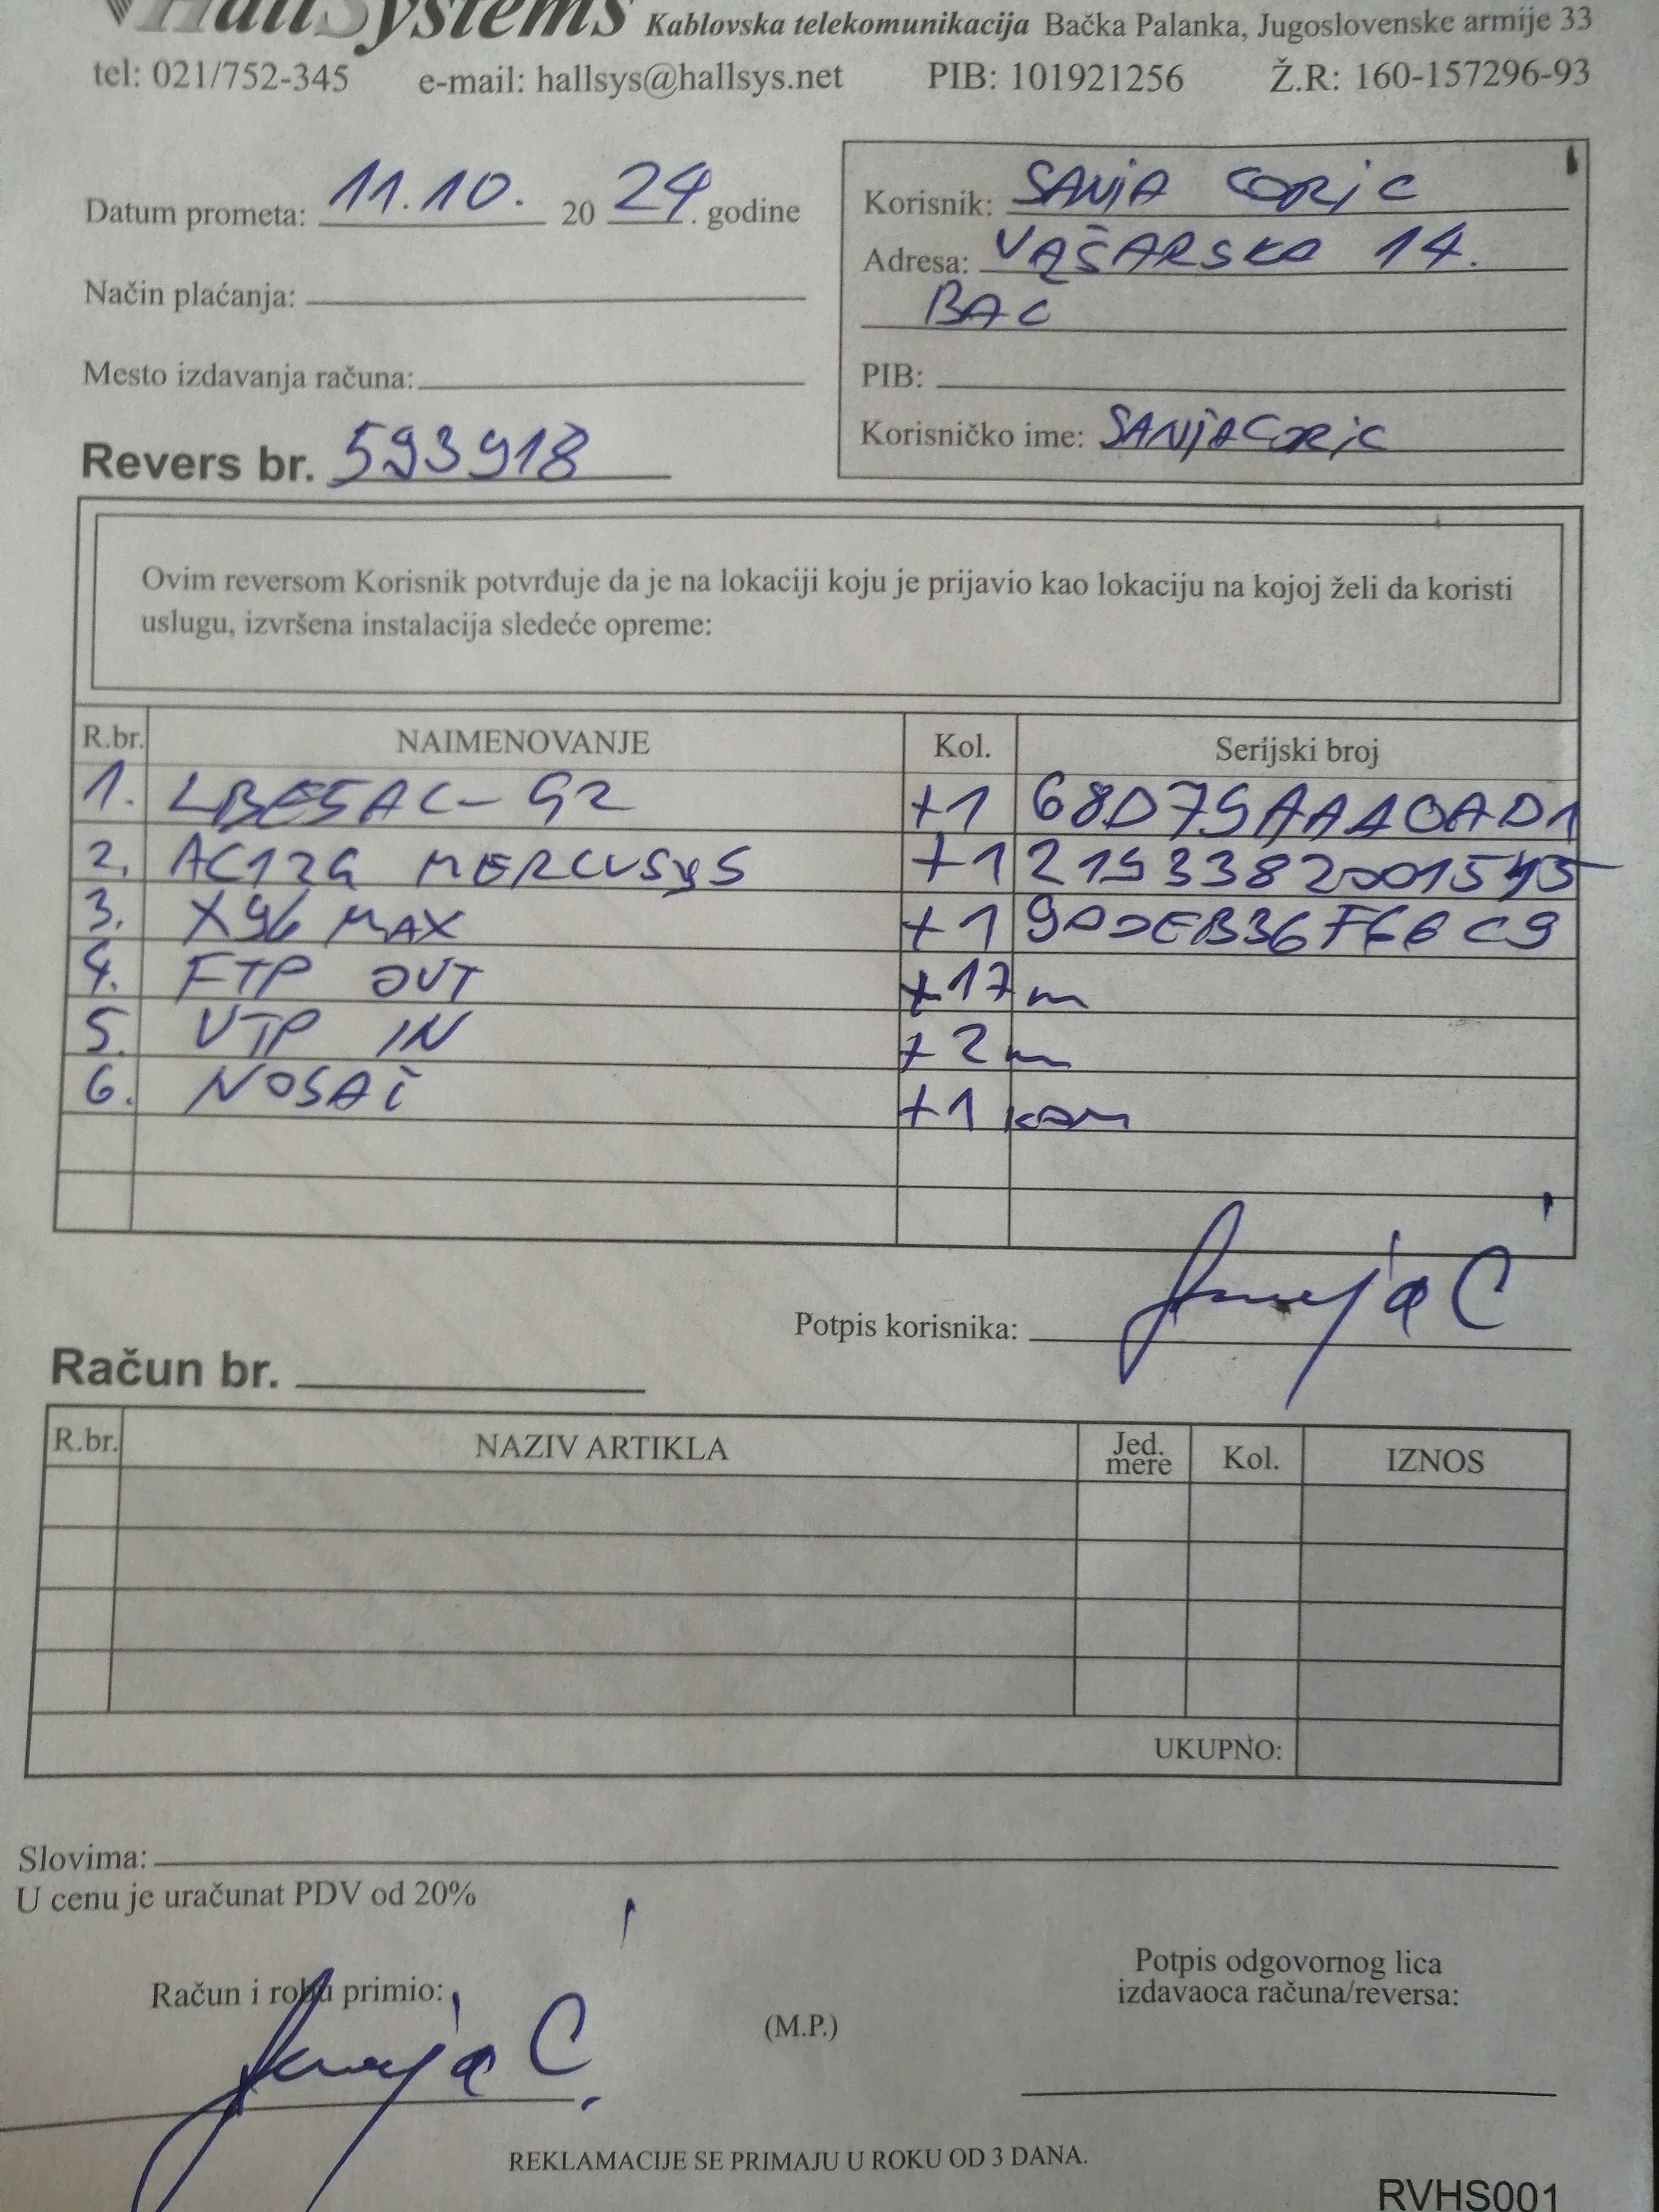 HallSystems Kablovska telekomunikacija Bačka Palanka, Jugoslovenske armije 33
tel: 021/752-345 e-mail: hallsys@hallsys.net PIB: 101921256 Ž.R: 160-157296-93
Datum prometa: 11.10. 20 24. godine
Način plaćanja:
Mesto izdavanja računa:
Revers br. 593918
Korisnik: SANJA CORIC
Adresa: VAŠARSKA 14.
BAC
PIB:
Korisničko ime: SANJACORIC
Ovim reversom Korisnik potvrđuje da je na lokaciji koju je prijavio kao lokaciju na kojoj želi da koristi
uslugu, izvršena instalacija sledeće opreme:
R.br. NAIMENOVANJE Kol. Serijski broj
1. LBE5AC-G2 +1 68D79AAA0AD1
2. AC12G MERCUSYS +1
3. X96 MAX +1
4. FTP OUT +17m
5. UTP IN +2m
6. NOSAČ +1 kom
Potpis korisnika: Sanja C
Račun br.
R.br. NAZIV ARTIKLA Jed. mere Kol. IZNOS
UKUPNO:
Slovima:
U cenu je uračunat PDV od 20%
Račun i robu primio: Sanja C
(M.P.)
Potpis odgovornog lica
izdavaoca računa/reversa:
REKLAMACIJE SE PRIMAJU U ROKU OD 3 DANA.
RVHS001